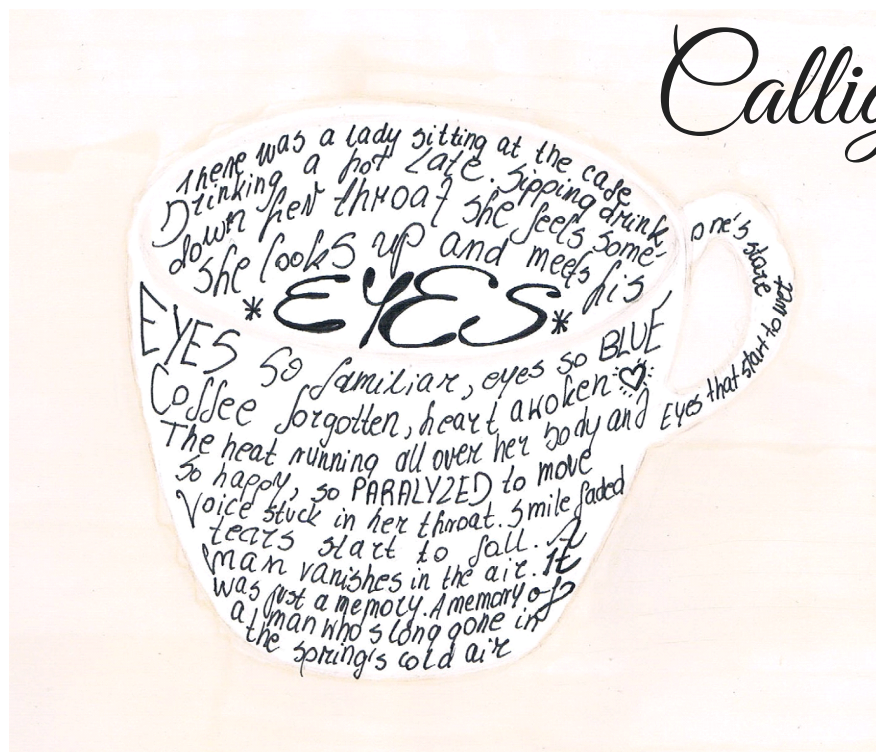 Callig
There was a lady sitting at the cafe
Drinking a hot Late. Sipping drink
down her throat she feels some-
one's stare
she looks up and meets his
*EYES*
Eyes that start to wet
EYES So familiar, eyes so BLUE
Coffee forgotten, heart awoken
The heat running all over her body and
so happy, so PARALYZED to move
Voice stuck in her throat. Smile faded
tears start to fall. A
man vanishes in the air. It
was just a memory. A memory of
a man who's long gone in
the spring's cold air